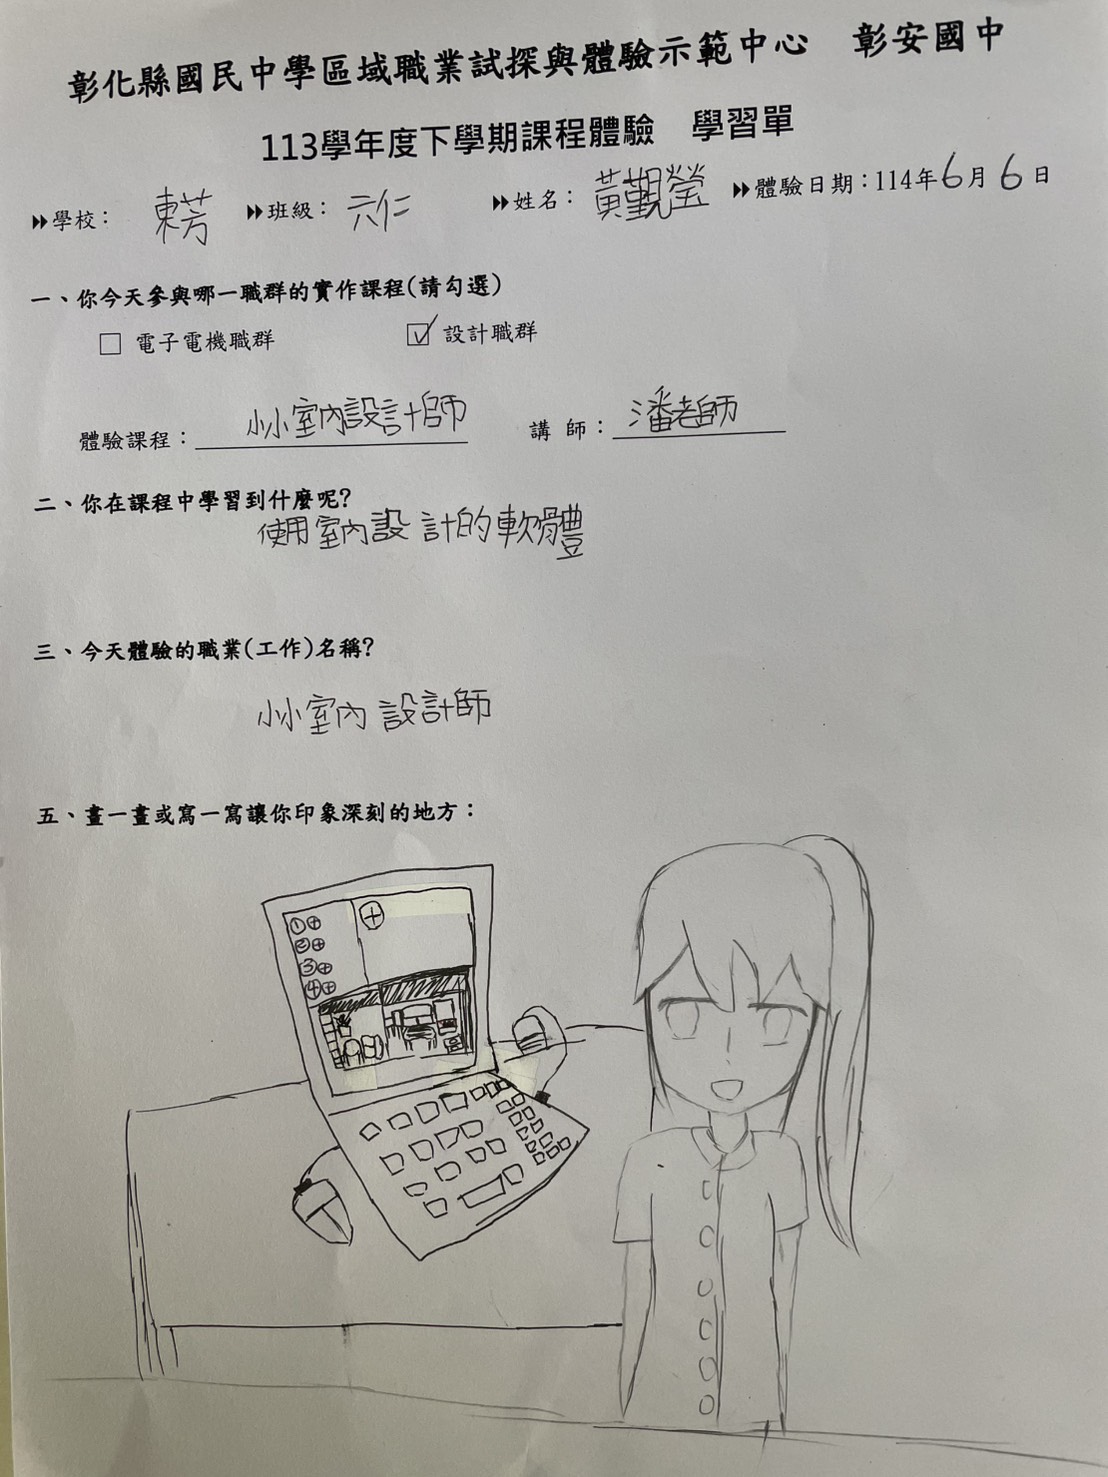 彰化縣國民中學區域職業試探與體驗示範中心 彰安國中
113學年度下學期課程體驗 學習單
學校： 東芳 班級： 六仁 姓名： 黃觀瑩 體驗日期：114年6月6日
一、你今天參與哪一職群的實作課程(請勾選)
□ 電子電機職群 ☑ 設計職群
體驗課程：小小室內設計師 講 師：潘老師
二、你在課程中學習到什麼呢?
使用室內設計的軟體
三、今天體驗的職業(工作)名稱?
小小室內設計師
五、畫一畫或寫一寫讓你印象深刻的地方：
①⊕
②⊕
③⊕
④⊕